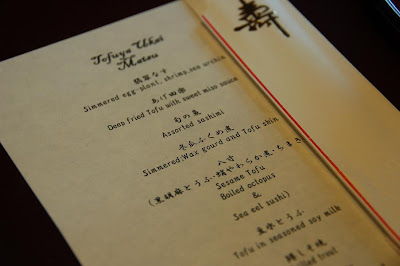 壽
Tofuya Ukai
Menu
翡翠なす
Simmered egg-plant, shrimp, sea urchin
あげ田楽
Deep fried Tofu with sweet miso sauce
旬の魚
Assorted sashimi
冬瓜ふくめ煮
Simmered Wax gourd and Tofu skin
八寸
(黒胡麻とうふ・蛸やわらか煮・ちまき
Sesame Tofu
Boiled octopus
&
Sea eel sushi)
豆水とうふ
Tofu in seasoned soy milk
焼